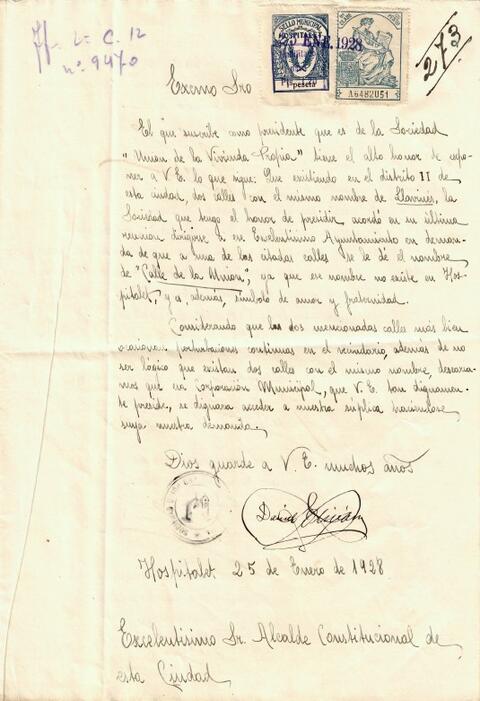 2 = C. 12
nº 9470
SELLO MUNICIPAL
HOSPITALET
25 ENE. 1928
1 peseta
A6482051
273
Excmo Sro
El que suscribe como presidente que es de la Sociedad
"Union de la Vivienda Propia" tiene el alto honor de expo-
ner a V. E. lo que sigue: Que existiendo en el distrito II de
esta ciudad, dos calles con el mismo nombre de Llavines, la
Sociedad que tengo el honor de presidir acordó en su última
reunion dirigirse a ese Excelentísimo Ayuntamiento en deman-
da de que a una de las citadas calles se le dé el nombre
de "Calle de la Union", ya que ese nombre no existe en Hos-
pitalet, y a, además, símbolo de amor y fraternidad.
Considerando que las dos mencionadas calles más bien
ocasionan perturbaciones continuas en el vecindario, además de no
ser lógico que existan dos calles con el mismo nombre, desearía-
mos que esa Corporación Municipal, que V. E. tan dignamen-
te preside, se dignara acceder a nuestra súplica haciéndose
suya nuestra demanda.
Dios guarde a V. E. muchos años
Hospitalet 25 de Enero de 1928
Excelentísimo Sr. Alcalde Constitucional de
esta Ciudad